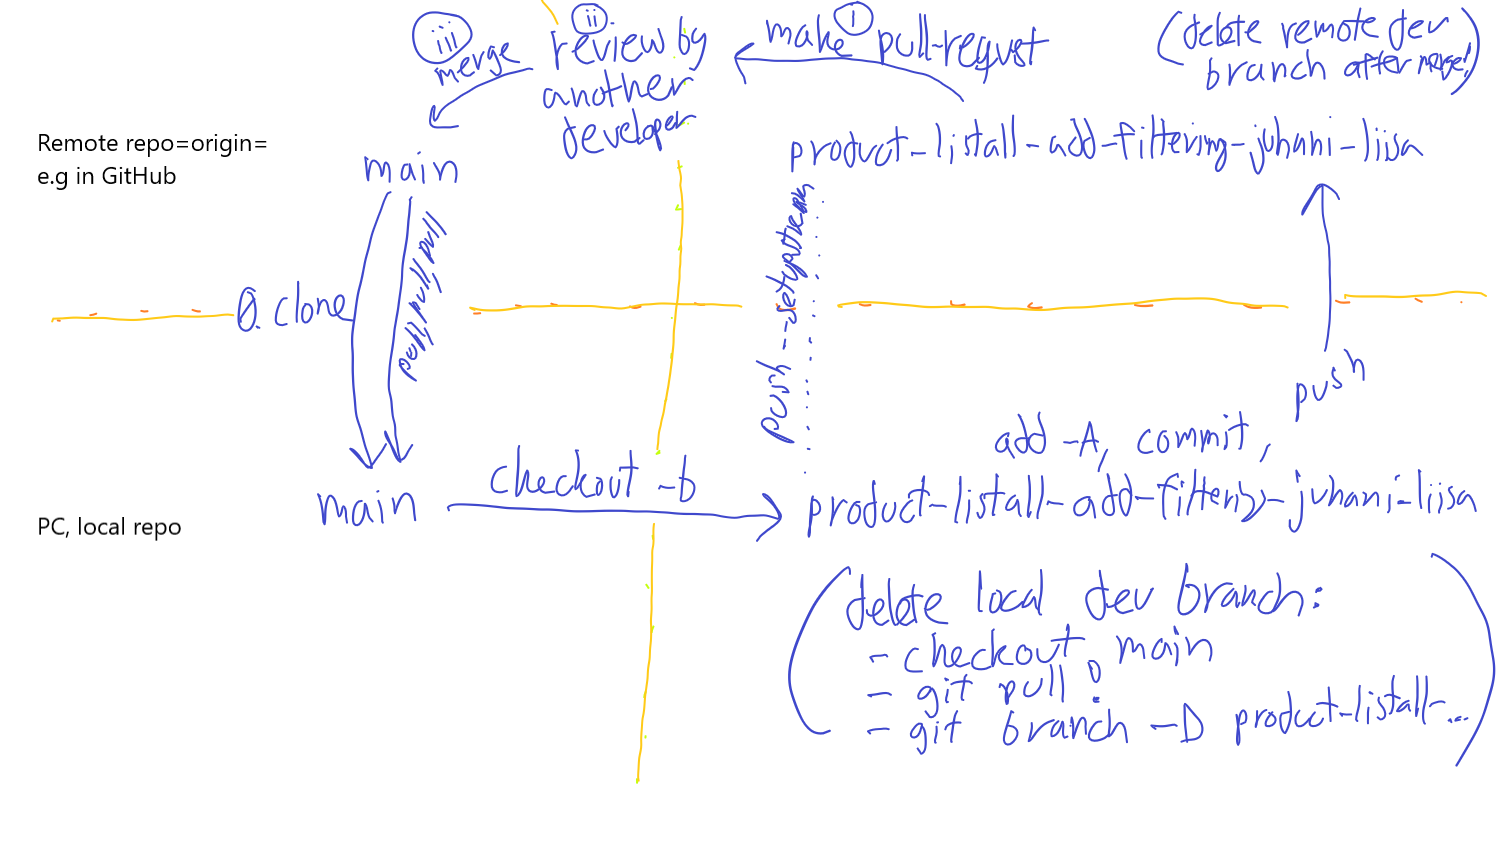 iii
merge
ii
review by
another
developer
i
make pull-requst
(delete remote dev
branch after merge!)
Remote repo=origin=
e.g in GitHub
main
product-listall-add-filtering-juhani-liisa
0. clone
pull, pull, pull
push --setupstream
push
add -A, commit,
PC, local repo
main
checkout -b
product-listall-add-filtering-juhani-liisa
(delete local dev branch:
- checkout main
- git pull!
- git branch -D product-listall-...)